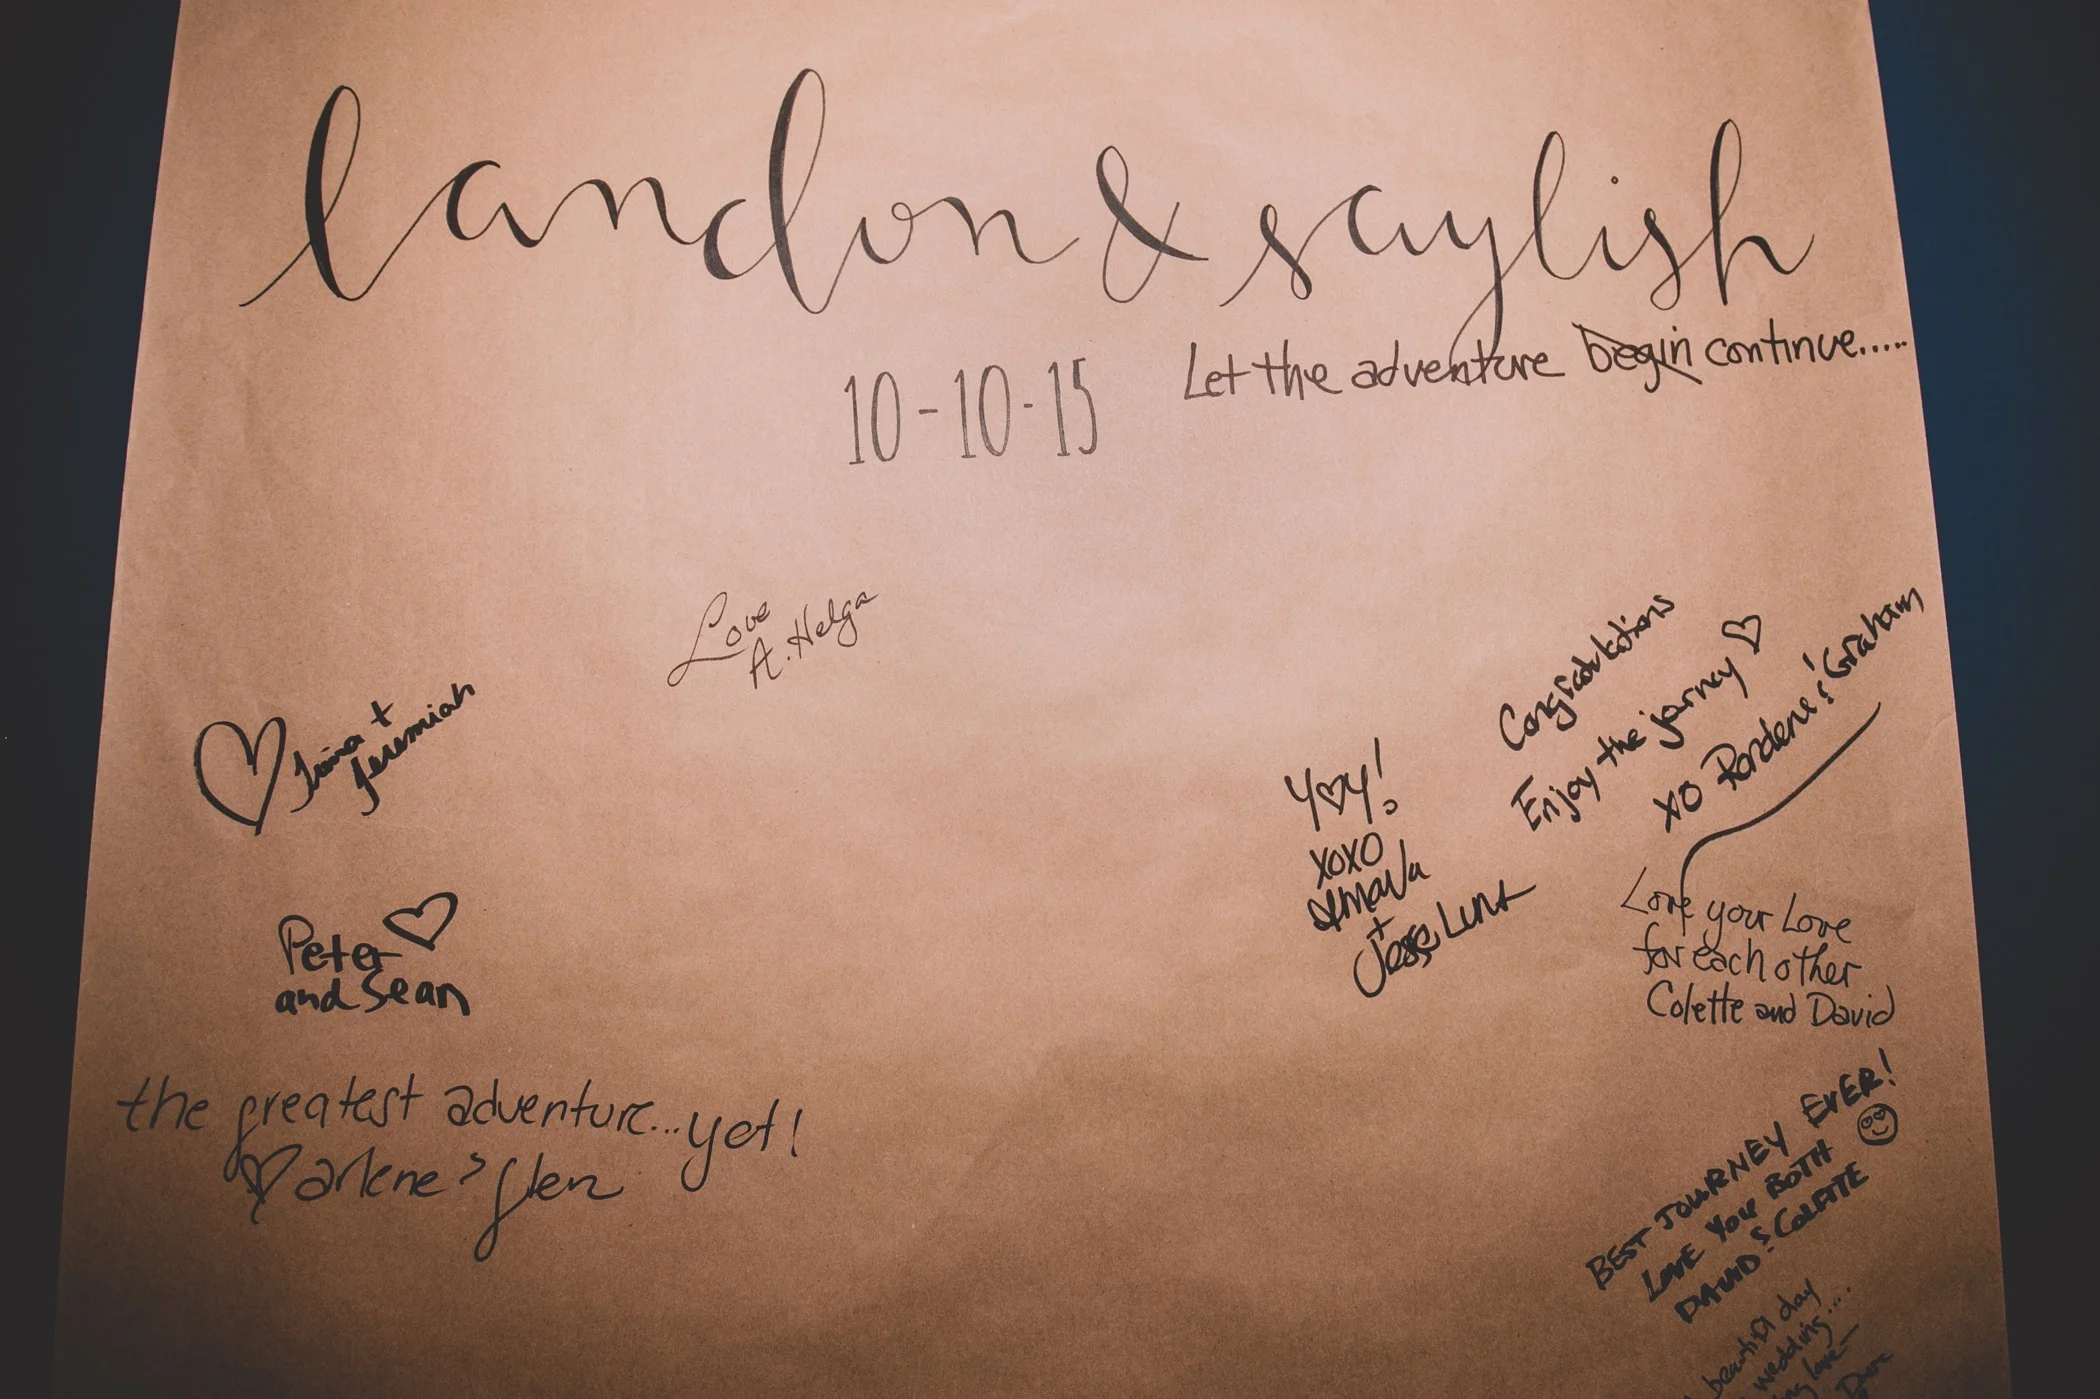 landon & saylish
10-10-15
Let the adventure begin continue.....
Love
A. Helga
Congratulations
Enjoy the journey ♡
XO Rardene & Graham
♡ Trina +
Jeremiah
Y♡Y!
XOXO
+
Jesse Lunt
Love your Love
for each other
Colette and David
Peter ♡
and Sean
the greatest adventure...yet!
arlene & Glen
BEST JOURNEY EVER!
LOVE YOU BOTH
DAVID & COLETTE
beautiful day
wedding....
love-